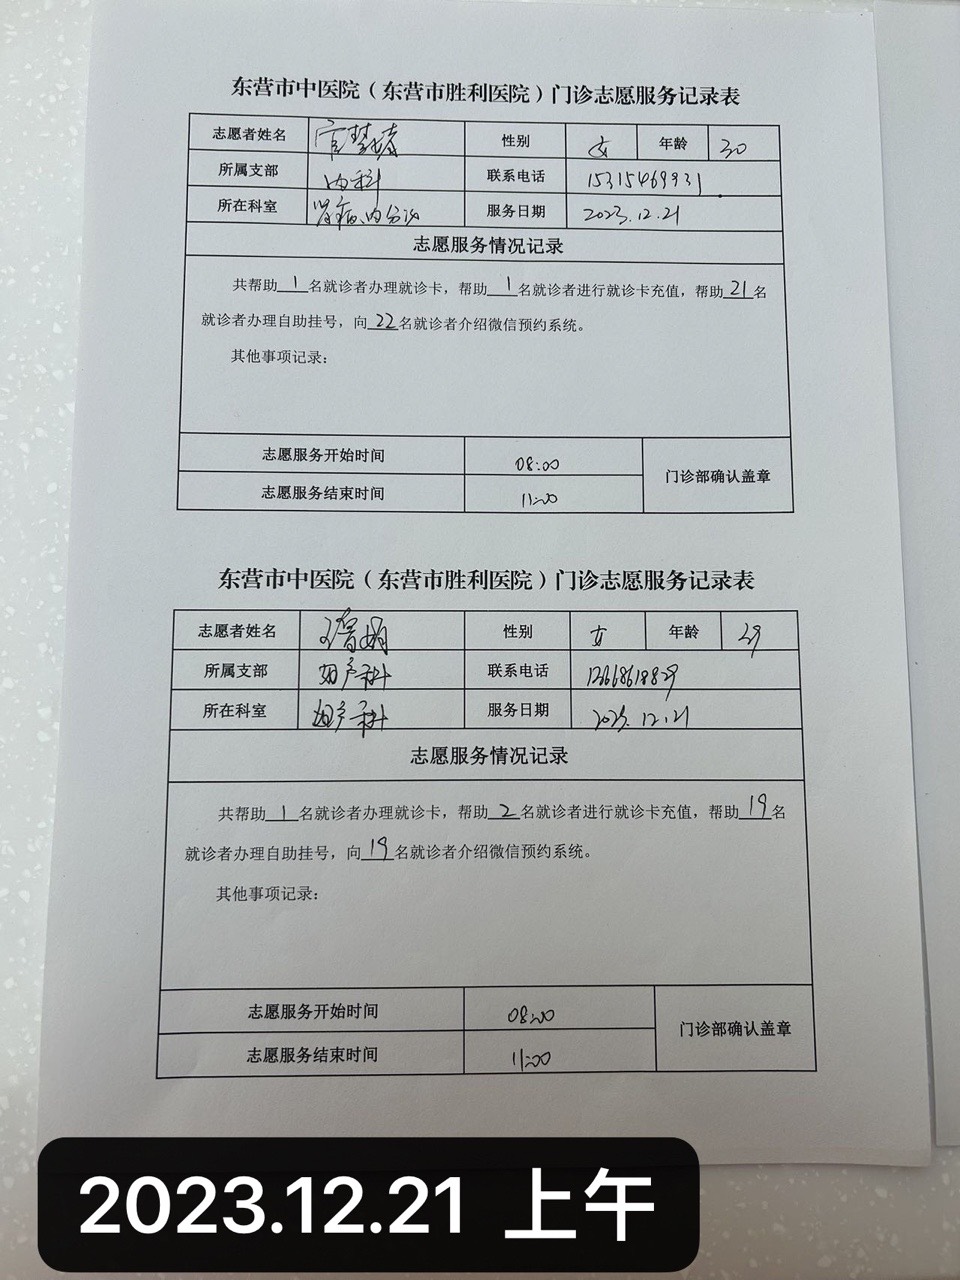 东营市中医院（东营市胜利医院）门诊志愿服务记录表
志愿者姓名 性别 女 年龄 30
所属支部 内科 联系电话 15315469931
所在科室 肾病内分泌 服务日期 2023.12.21
志愿服务情况记录
共帮助1名就诊者办理就诊卡，帮助1名就诊者进行就诊卡充值，帮助21名
就诊者办理自助挂号，向22名就诊者介绍微信预约系统。
其他事项记录：
志愿服务开始时间 08:00
门诊部确认盖章
志愿服务结束时间 11:00
东营市中医院（东营市胜利医院）门诊志愿服务记录表
志愿者姓名 性别 女 年龄 29
所属支部 妇产科 联系电话
所在科室 妇产科 服务日期 2023.12.21
志愿服务情况记录
共帮助1名就诊者办理就诊卡，帮助2名就诊者进行就诊卡充值，帮助19名
就诊者办理自助挂号，向19名就诊者介绍微信预约系统。
其他事项记录：
志愿服务开始时间 08:00
门诊部确认盖章
志愿服务结束时间 11:00
2023.12.21 上午